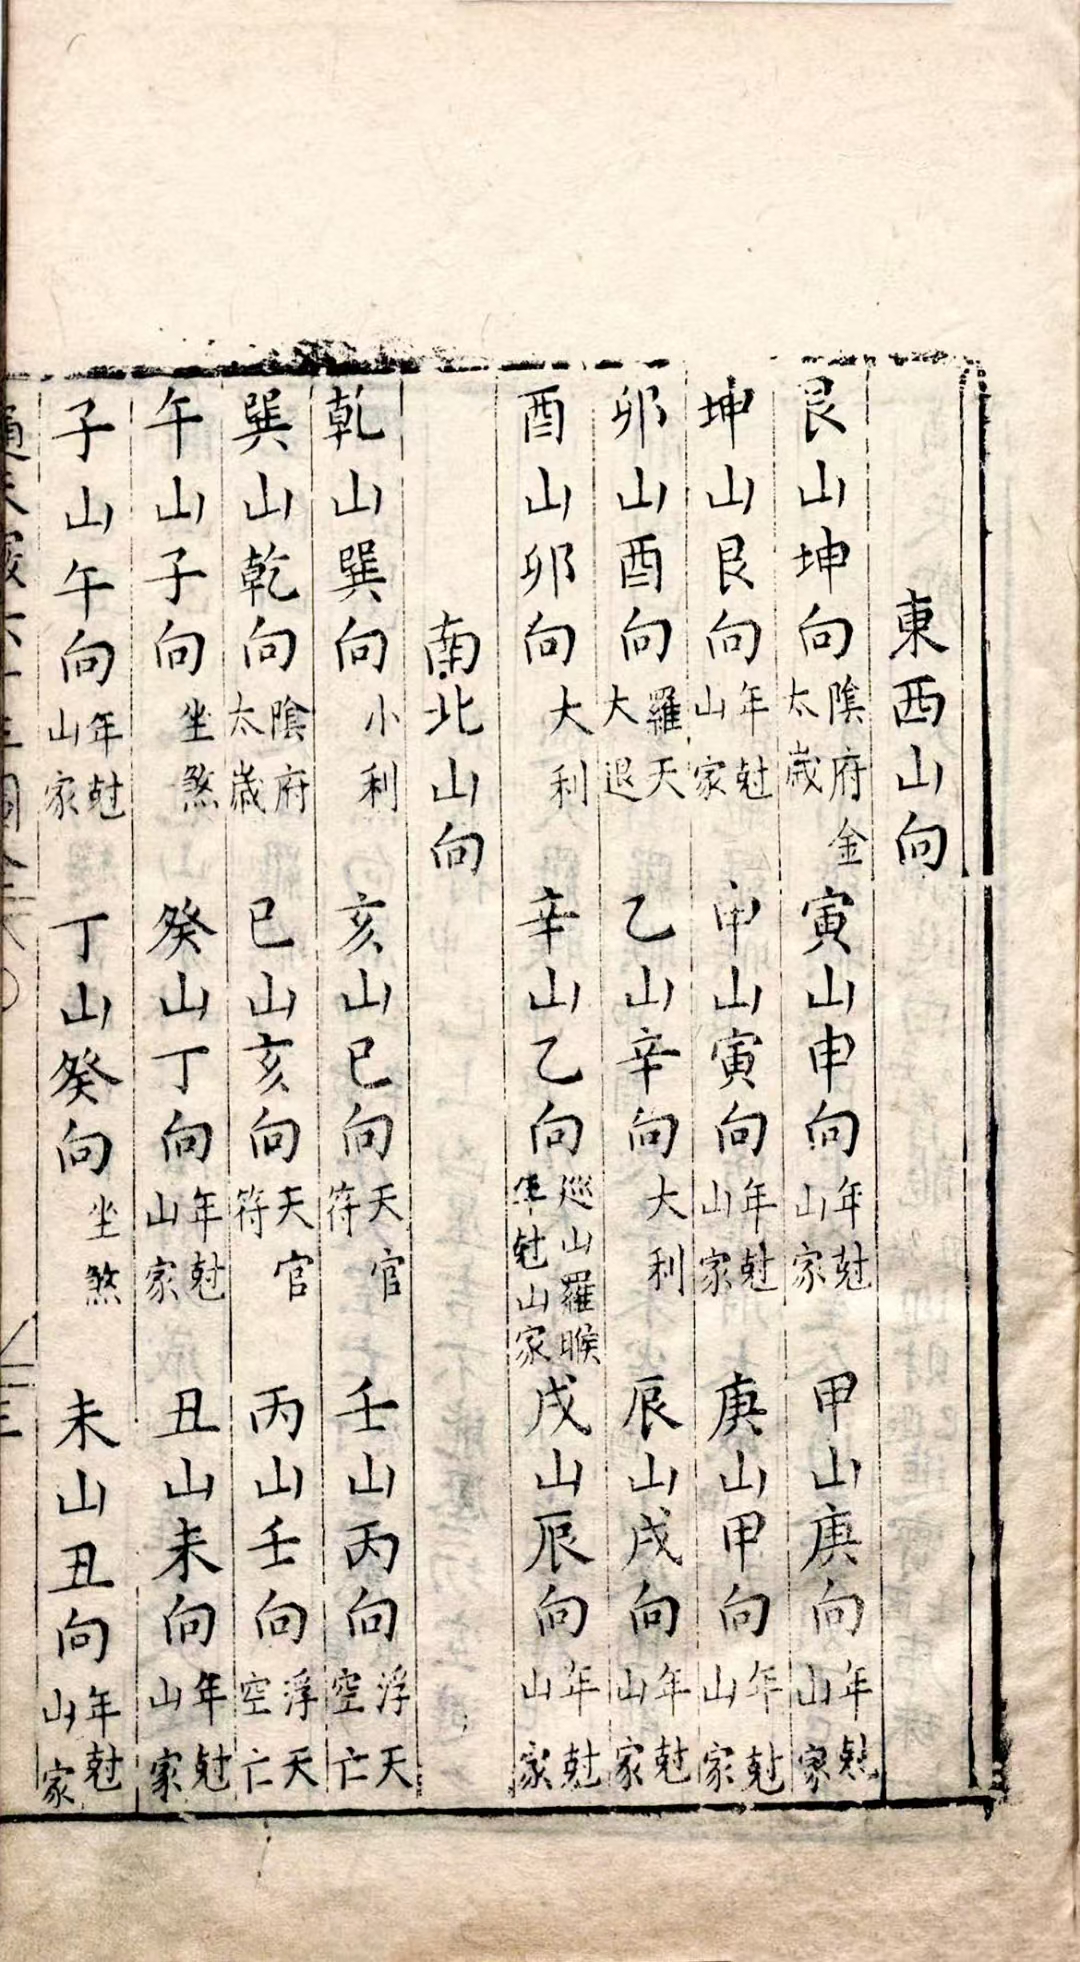 東西山向
艮山坤向 陰府金太歲 寅山申向 年尅山家 甲山庚向 年尅山家
坤山艮向 年尅山家 申山寅向 年尅山家 庚山甲向 年尅山家
卯山酉向 羅天大退 乙山辛向 大利 辰山戌向 年尅山家
酉山卯向 大利 辛山乙向 廵山羅睺年尅山家 戌山辰向 年尅山家
南北山向
乾山巽向 小利 亥山巳向 天官符 壬山丙向 浮天空亡
巽山乾向 陰府太歲 巳山亥向 天官符 丙山壬向 浮天空亡
午山子向 坐煞 癸山丁向 年尅山家 丑山未向 年尅山家
子山午向 年尅山家 丁山癸向 坐煞 未山丑向 年尅山家